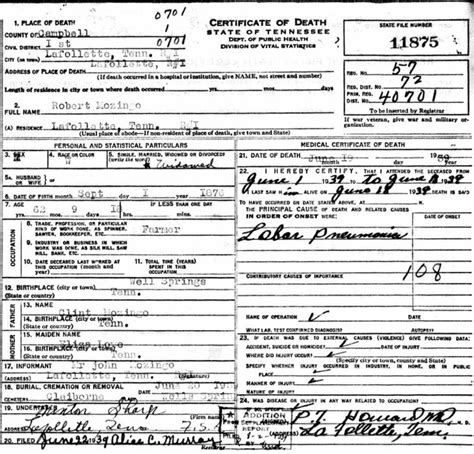 0701
1. PLACE OF DEATH
COUNTY OF Campbell
CIVIL DISTRICT 1st 0701
Lafollette, Tenn. R#1
CITY (or town) Lafollette, R#1
ADDRESS OF PLACE OF DEATH
(If death occurred in a hospital or institution, give NAME, not street and number)
Length of residence in city or town where death occurred yrs. mos. days
2. FULL NAME Robert Lozingo
(A) RESIDENCE Lafollette, Tenn. R#1
(Usual place of abode—If non-resident of place of death, give town and State)
CERTIFICATE OF DEATH
STATE OF TENNESSEE
DEPT. OF PUBLIC HEALTH
DIVISION OF VITAL STATISTICS
STATE FILE NUMBER
11875
REG. NO. 57
REG. DIST. 72
PRIM. REG. DIST. 40701
To be inserted by Registrar
If war veteran, give war and military organization.
PERSONAL AND STATISTICAL PARTICULARS
3. SEX
4. RAGE OR COLOR
5. SINGLE, MARRIED, WIDOWED OR DIVORCED
(Write the word)
Widowed
5A. HUSBAND OR WIFE OF
6. DATE OF BIRTH (month, day and year) Sept 1 1876
7. AGE YEARS MONTHS DAYS IF LESS THAN ONE DAY
62 9 18
OCCUPATION
8. TRADE, PROFESSION, OR PARTICULAR KIND OF WORK DONE, AS SPINNER, SAWYER, BOOKKEEPER, ETC.
Farmer
9. INDUSTRY OR BUSINESS IN WHICH WORK WAS DONE, AS SILK MILL, SAW MILL, BANK, ETC.
10. DATE DECEASED LAST WORKED AT THIS OCCUPATION (month and year)
11. TOTAL YEARS SPENT IN THIS OCCUPATION
12. BIRTHPLACE (city or town) Well Springs
(State or country) Tenn.
FATHER
13. NAME Clint Lozingo
14. BIRTHPLACE (city or town)
(State or country) Tenn.
MOTHER
15. MAIDEN NAME
16. BIRTHPLACE (city or town)
(State or country) Tenn.
17. INFORMANT Mr John Lozingo
(Address) Lafollette, Tenn.
18. BURIAL, CREMATION OR REMOVAL June 20
Claiborne Well Springs
19. UNDERTAKER Sharp
Lafollette, Tenn
20. FILED June 22 1939 Alice C. Murray
MEDICAL CERTIFICATE OF DEATH
21. DATE OF DEATH June 19 1939
22. I HEREBY CERTIFY, THAT I ATTENDED THE DECEASED FROM
June 1 1939 to June 18 39
I LAST SAW HIM ALIVE ON June 18 1939
TO HAVE OCCURRED ON DATE STATED ABOVE, AT M.
THE PRINCIPAL CAUSE OF DEATH AND RELATED CAUSES IN ORDER OF ONSET WERE:
Lobar Pneumonia
108
CONTRIBUTORY CAUSES OF IMPORTANCE
NAME OF OPERATION
WHAT LAB. TEST CONFIRMED DIAGNOSIS? AUTOPSY?
23. IF DEATH WAS DUE TO EXTERNAL CAUSES (VIOLENCE) GIVE FOLLOWING DATA:
ACCIDENT, SUICIDE OR HOMICIDE?
WHERE DID INJURY OCCUR?
(Specify city, or town, county and State)
MANNER OF INJURY
NATURE OF INJURY
P.T. Howard MD
La Follette, Tenn.